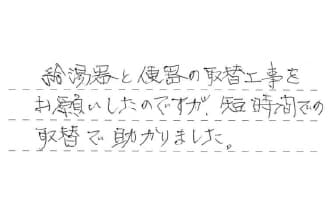 給湯器と便器の取替工事を
お願いしたのですが、短時間での
取替で助かりました。